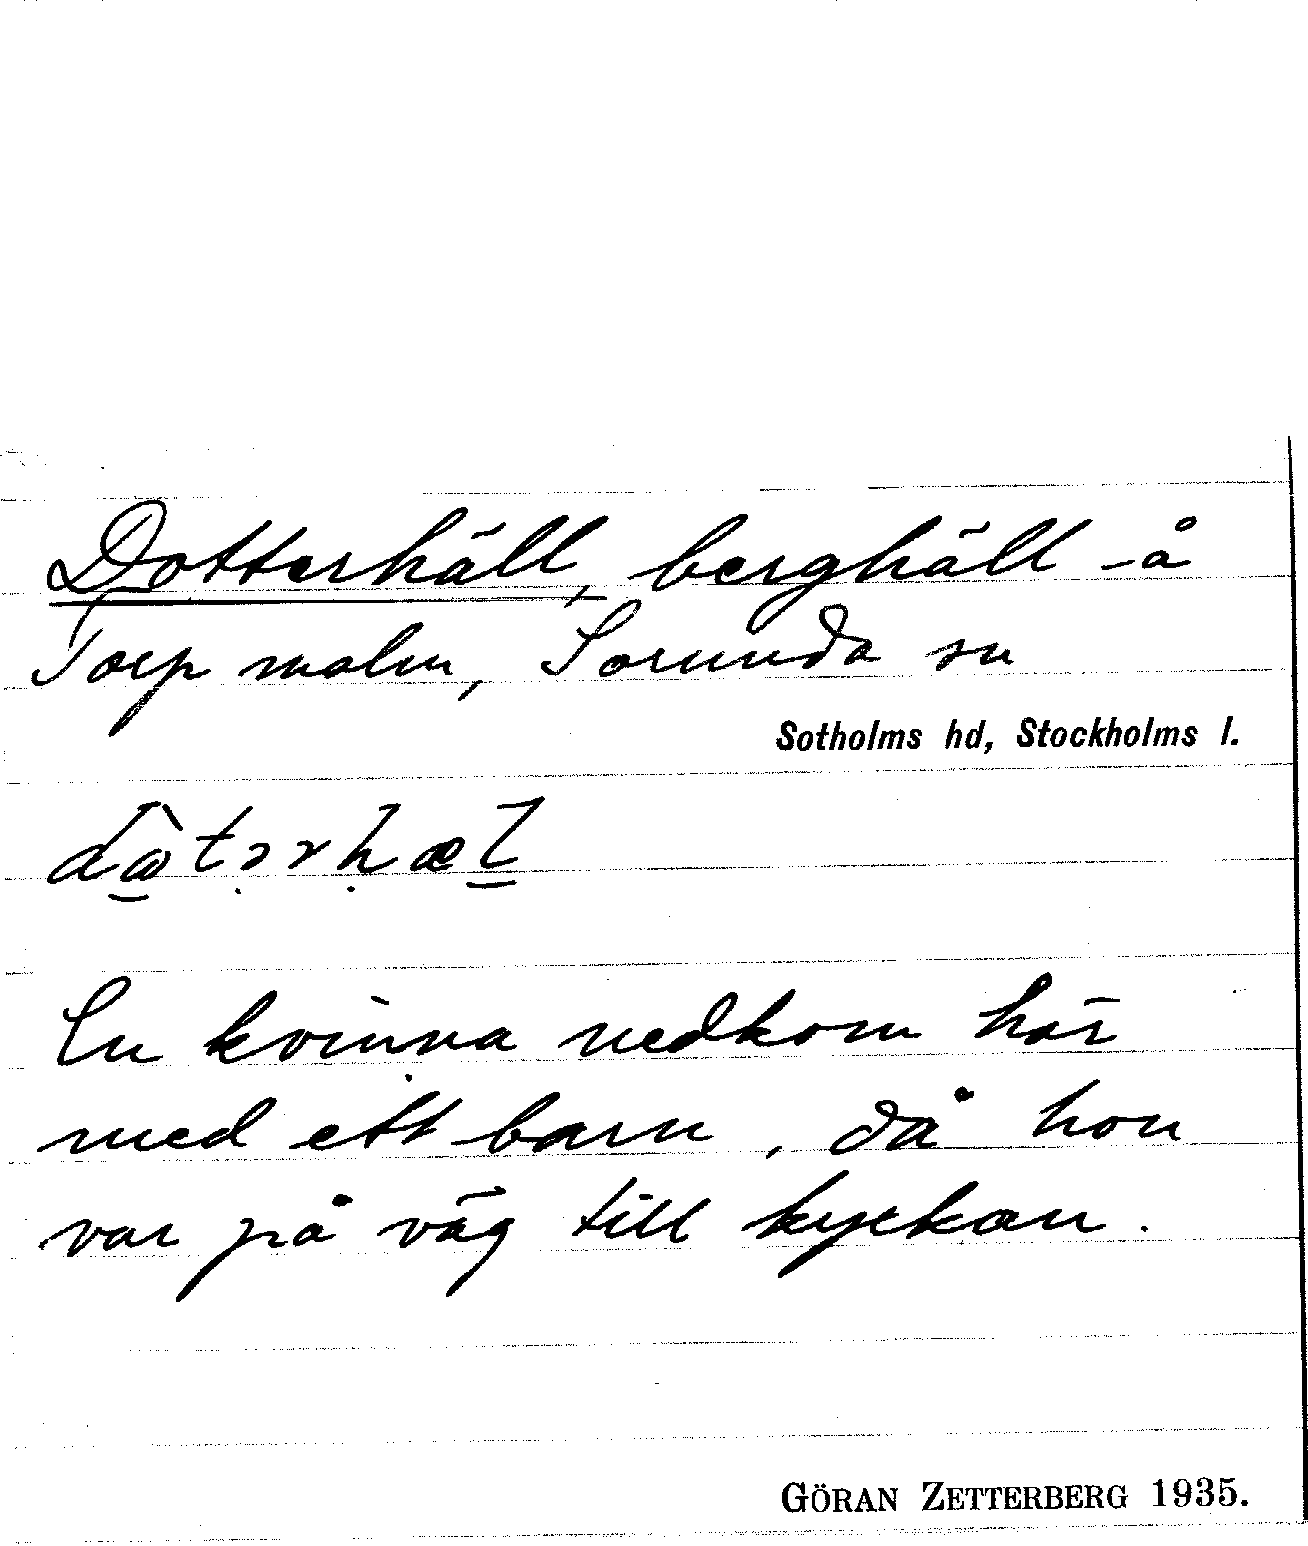 Dotterhäll, berghäll å
Torp malm, Sorunda sn
Sotholms hd, Stockholms l.
En kvinna nedkom här
med ett barn, då hon
var på väg till kyrkan.
GÖRAN ZETTERBERG 1935.